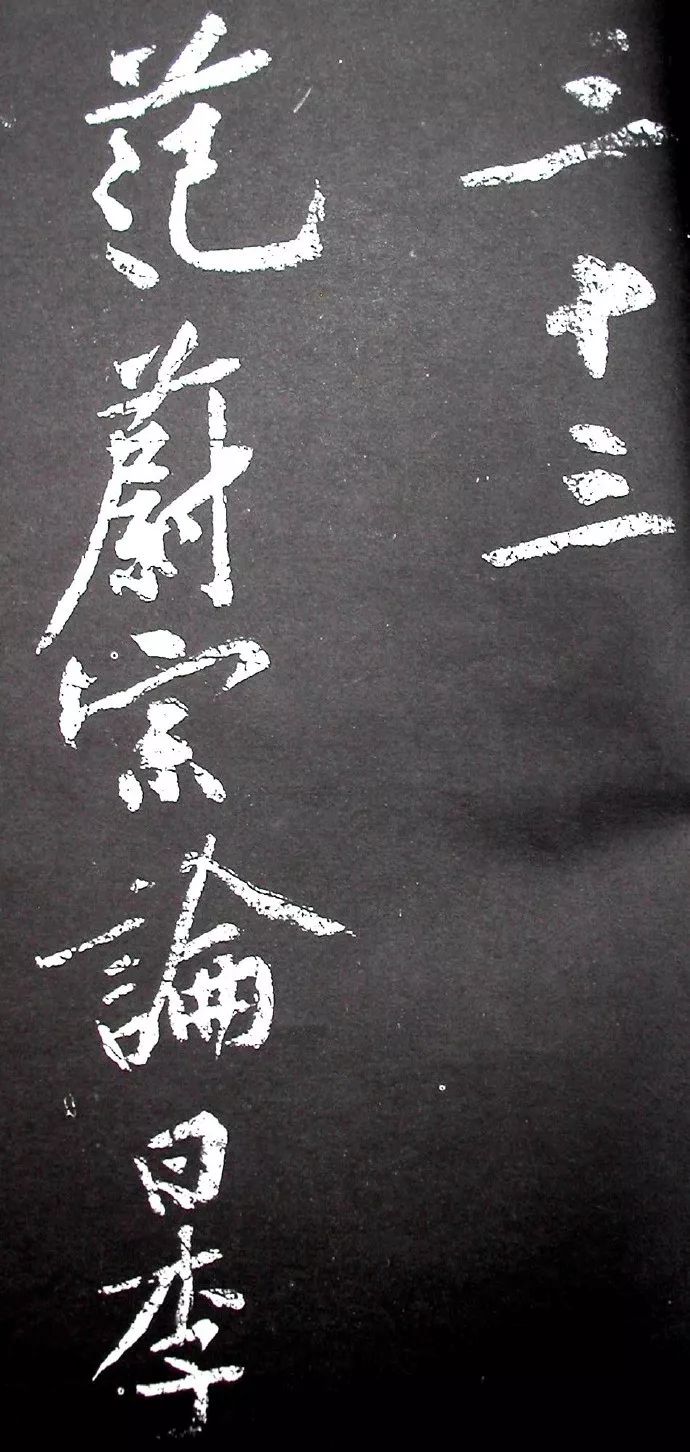 三十三
范蔚宗論曰李